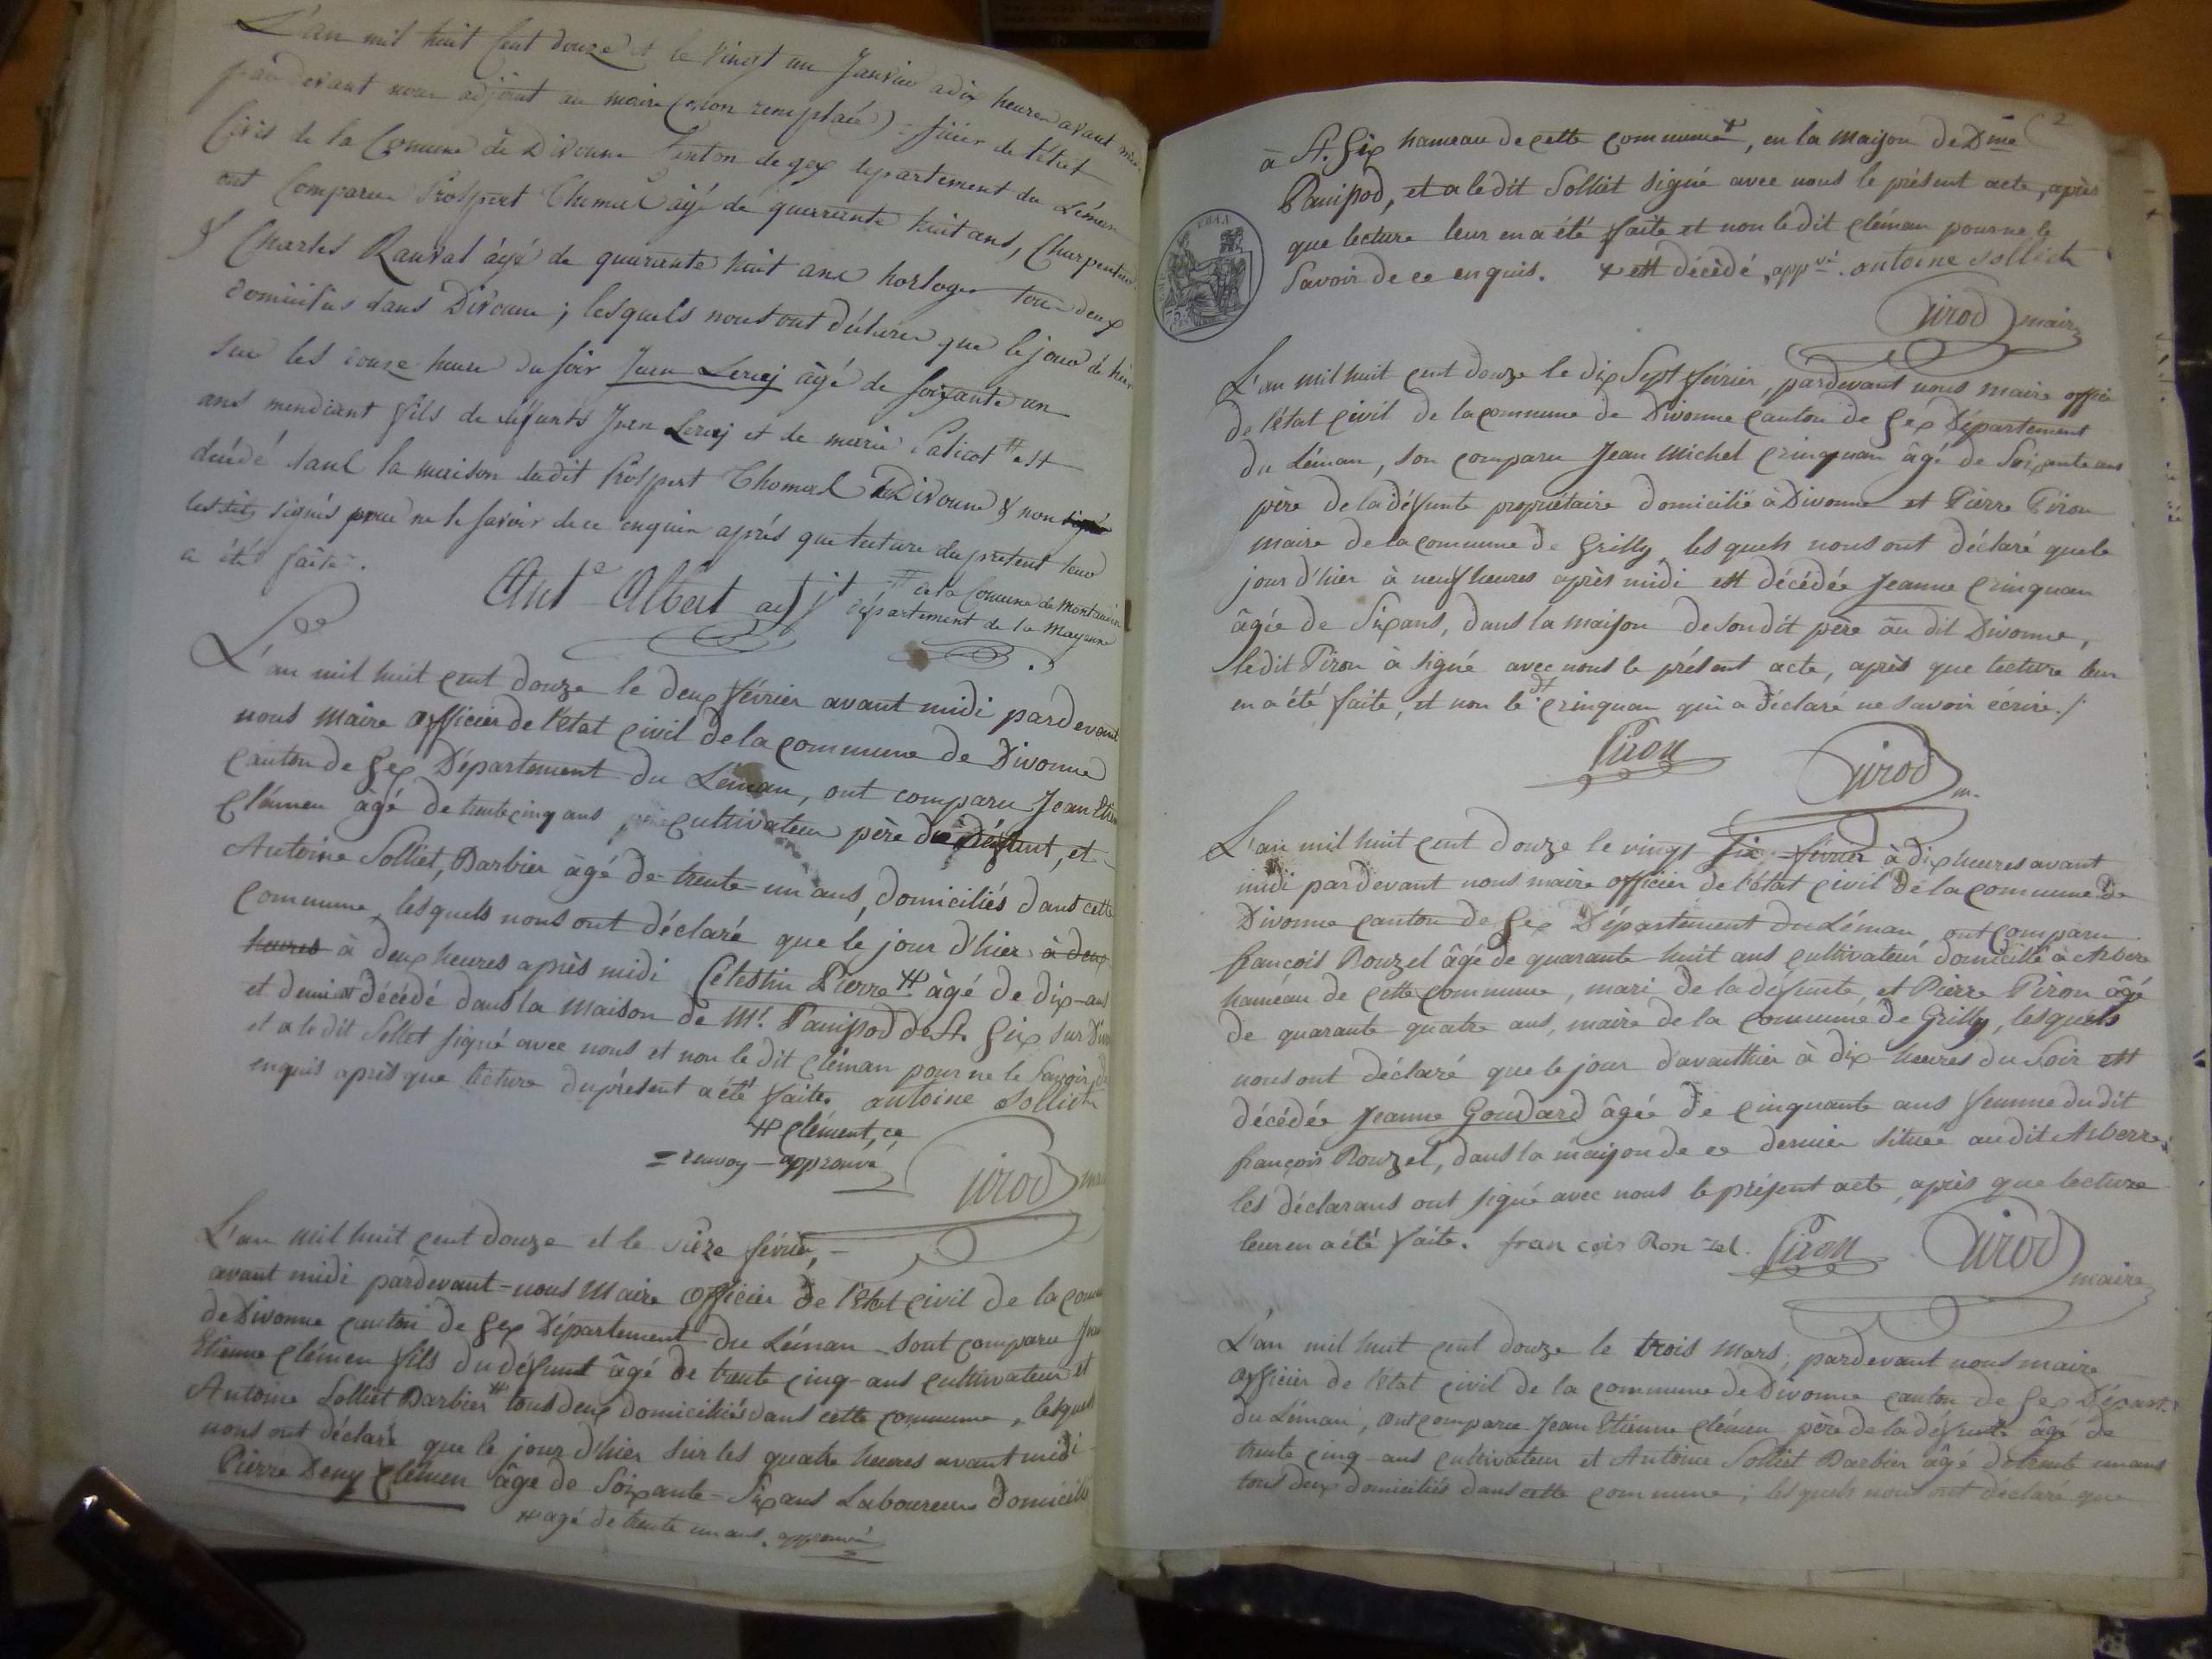 L'an mil huit Cent douze & le vingt un Janvier a dix heures avant midi
par devant nous adjoint au maire (non remplacé) officier de l'état
Civil de la Comune de Divonne Canton de gex departement du Léman
ont Comparu Prospert Thomas âgé de quarante huit ans, Charpentier
& Charles Ranvat âgé de quarante huit ans horloger tous deux
domiciliés dans Divonne ; lesquels nous ont déclarer que le jour de hier
sur les onze heure du soir Jean Leroy âgé de soixante un
ans mendiant fils de défunts Jean Leroy et de marie Palicot # est
décédé dans la maison dudit Prospert Thomas à Divonne & non signé
les dits signés pour ne le savoir de ce enquis après que lecture du présent leur
a été faite.
Ant.e Albert adj.t
# de la Comune de
département de la Mayenne
L'an mil huit cent douze le deux février avant midi pardevant
nous Maire officier de l'état civil de la commune de Divonne
canton de Gex Département du Léman, ont comparu Jean Etienne
Clémen âgé de trente cinq ans cultivateur père du défunt, et
Antoine Solliet, Barbier âgé de trente-un ans, domiciliés dans cette
commune, lesquels nous ont déclaré que le jour d'hier à deux
heures à deux heures après midi Célestin Pierre # âgé de dix-ans
et demi est décédé dans la maison de Mr. Panissod de St. Gix sur Div
et a le dit Sollet signé avec nous et non le dit Cléman pour ne le savoir de
enquis après que lecture du présent a été faite. antoine Solliet
# Clément, ce
= renvoy - approuvé
Girod maire
L'an mil huit cent douze et le seize février, -
avant midi pardevant-nous Maire officier de l'état civil de la commune
de Divonne canton de Gex Département du Léman sont comparu Jean
Etienne Clémen fils du défunt âgé de trente cinq-ans cultivateur et
Antoine Solliet Barbier # tous deux domiciliés dans cette commune, lesquels
nous ont déclaré que le jour d'hier sur les quatre heures avant midi
Pierre Deny Clémen âgé de Soixante-Six ans Laboureur domicilié
# agé de trente un ans. approuvé
2
à St. Gix hameau de cette commune +, en la maison de Dme
Panissod, et a le dit Solliet signé avec nous le présent acte, après
que lecture leur en a été faite et non le dit Cléman pour ne le
Savoir de ce enquis. + est décédé, appvé. antoine Solliet
Girod maire
L'an mil huit cent douze le dix Sept février, pardevant nous maire officier
de l'état civil de la commune de Divonne canton de Gex Département
du Léman, son comparu Jean Michel Crinquan âgé de Soixante ans
père de la défunte propriétaire domicilié à Divonne et Pierre Piron
maire de la commune de Grilly lesquels nous ont déclaré que le
jour d'hier à neuf heures après midi est décédée Jeanne Crinquan
âgée de Six ans, dans la maison de son dit père au dit Divonne,
le dit Piron à signé avec nous le présent acte, après que lecture leur
en a été faite, et non le dt Crinquan qui a déclaré ne savoir écrire./
Piron Girod m.
L'an mil huit cent douze le vingt six février à dix heures avant
midi pardevant nous maire officier de l'état civil de la commune de
Divonne canton de Gex Département du Léman, ont comparu
françois Rouzel âgé de quarante-huit ans cultivateur domicilié à Arbere
hameau de cette commune, mari de la défunte, et Pierre Piron âgé
de quarante quatre ans, maire de la commune de Grilly, lesquels
nous ont déclaré que le jour d'avanthier à dix-heures du soir est
décédée Jeanne Goudard âgée de cinquante ans femme du dit
françois Rouzel, dans la maison de ce dernier située audit Arberre,
les déclarans ont signé avec nous le présent acte, après que lecture
leur en a été faite. francois Ron zel. Piron Girod maire
L'an mil huit cent douze le trois Mars, pardevant nous maire
officier de l'état civil de la commune de Divonne canton de Gex Départ.
du Léman, ont comparu Jean Etienne Clémen père de la défunte âgé de
trente cinq-ans cultivateur et Antoine Solliet Barbier âgé de trente un ans
tous deux domiciliés dans cette commune ; lesquels nous ont déclaré que